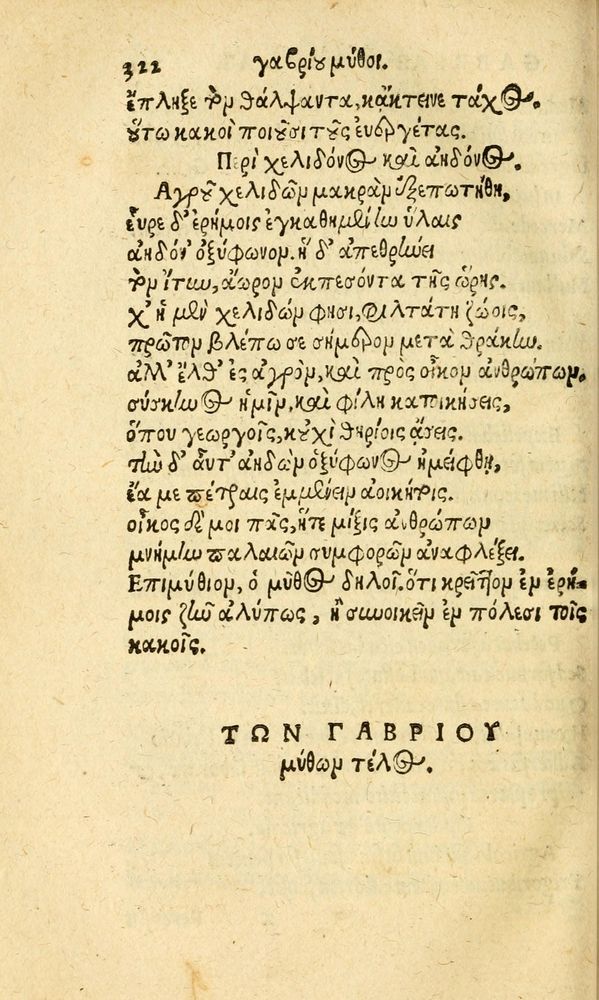 322 γαβρίου μῦθοι.
ἔπληξε τὸν θάλψαντα, κἄκτεινε τάχος.
οὕτω κακοὶ ποιοῦσι τοὺς ἐυεργέτας.
Περὶ χελιδόνος καὶ ἀηδόνος.
Ἀγροῦ χελιδὼν μακρὰν ἐξεπωτήθη,
εὗρε δ' ἐρήμοις ἐγκαθημένην ὕλαις
ἀηδόν' ὀξύφωνον. ἡ δ' ἀπεθρήνει
τὸν ἴτυν, ἄωρον ἐκπεσόντα τῆς ὥρης.
χ' ἡ μὲν χελιδών φησι, φιλτάτη ζώοις,
πρῶτον βλέπω σε σήμερον μετὰ θράκην.
ἀλλ' ἔλθ' ἐς ἀγρὸν, καὶ πρὸς οἶκον ἀνθρώπων.
σύσκηνος ἡμῖν, καὶ φίλη κατοικήσεις,
ὅπου γεωργοῖς, κοὐχὶ θηρίοις ᾄσεις.
τὴν δ' αὖτ' ἀηδὼν ὀξύφωνος ἠμείφθη,
ἔα με πέτραις ἐμμένειν ἀοικήτοις.
οἶκος δέ μοι πᾶς, ἥτε μίξις ἀνθρώπων
μνήμην παλαιῶν συμφορῶν ἀναφλέξει.
Επιμύθιον, ὁ μῦθος δηλοῖ. ὅτι κρεῖττον ἐν ἐρή-
μοις ζῆν ἀλύπως, ἢ συνοικεῖν ἐν πόλεσι τοῖς
κακοῖς.
ΤΩΝ ΓΑΒΡΙΟΥ
μύθων τέλος.